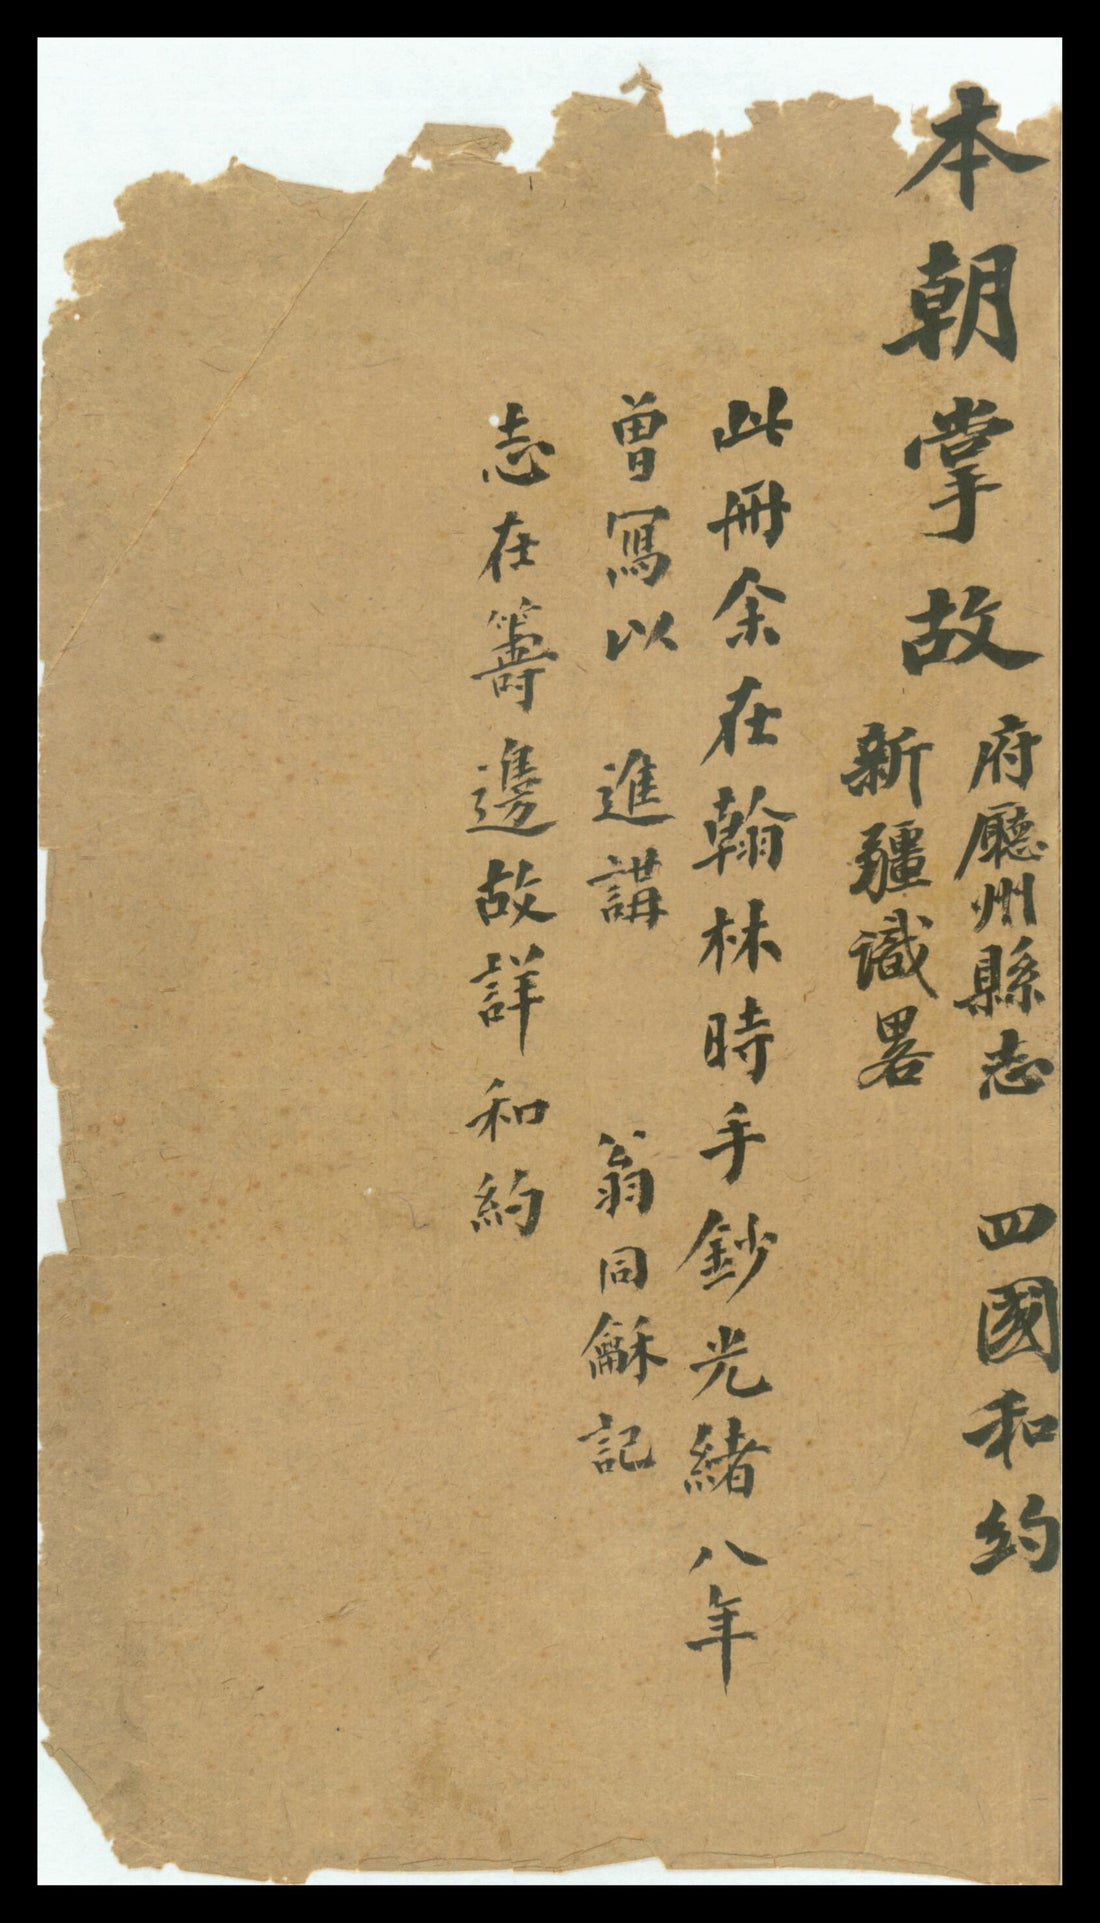 本朝掌故
府廳州縣志 四國和約
新疆識畧
此冊余在翰林時手鈔光緒八年
曾寫以 進講 翁同龢記
志在籌邊故詳和約